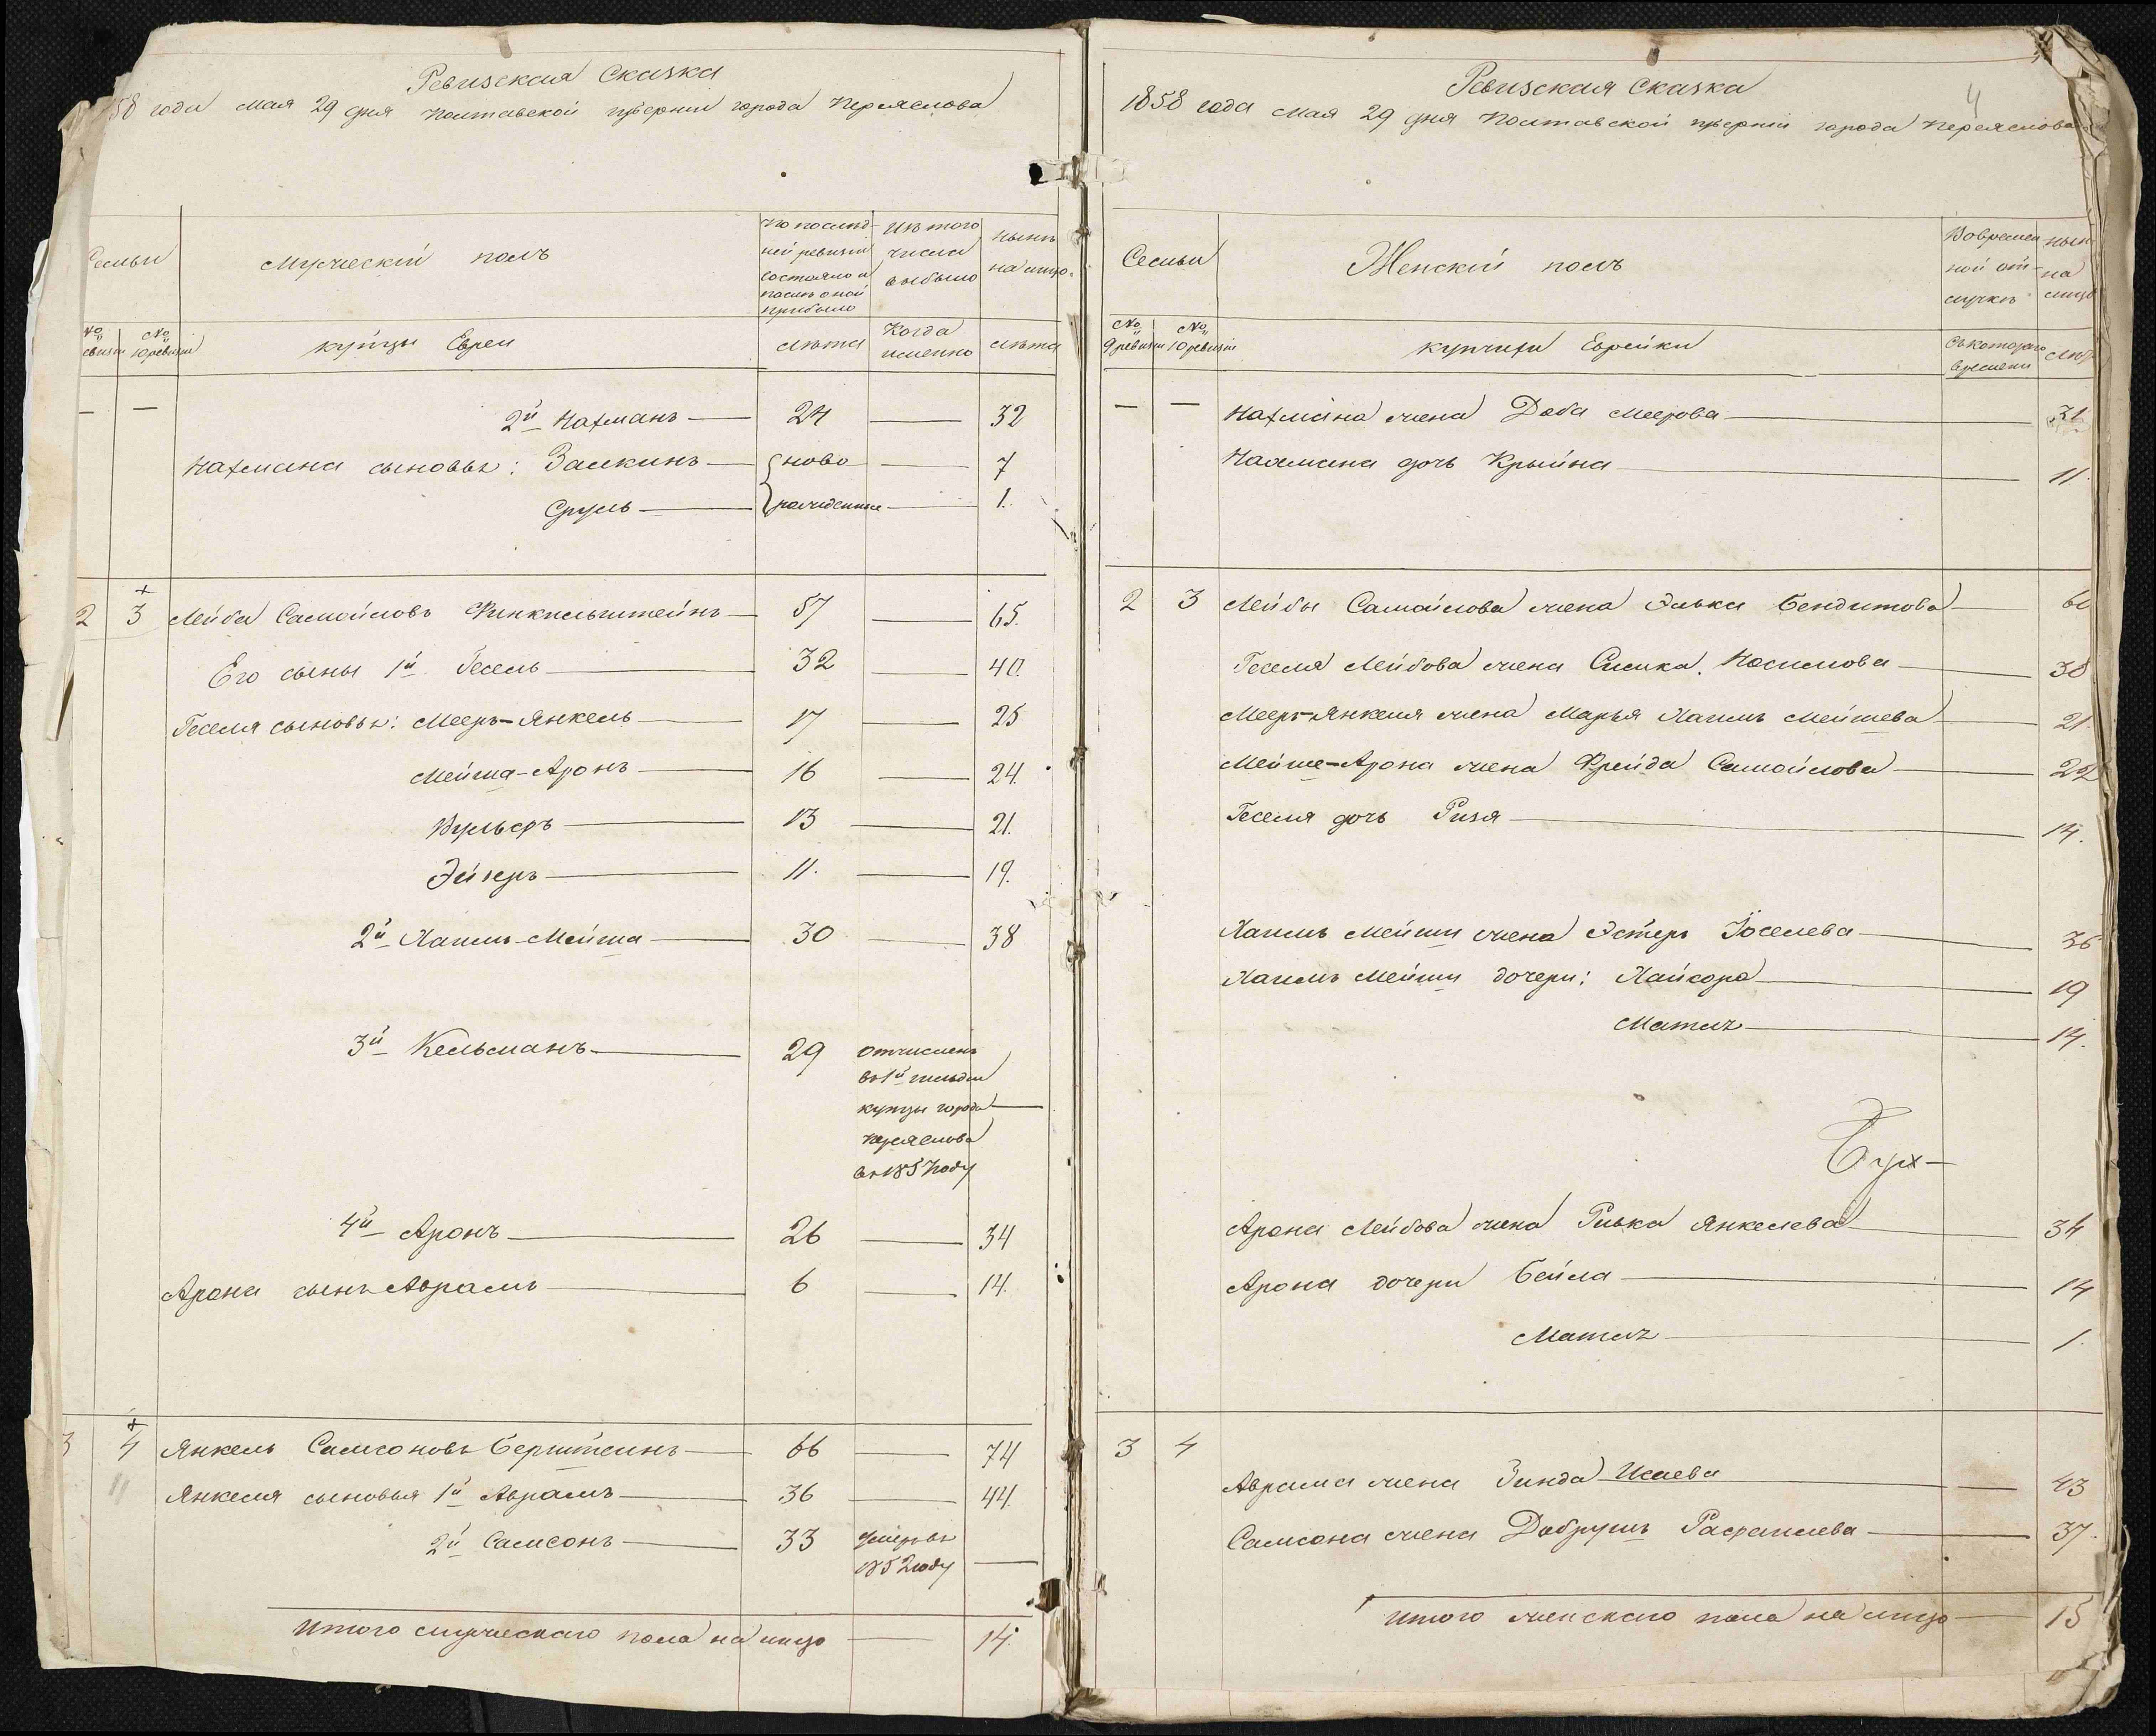 Ревизская Сказка
58 года мая 29 дня Полтавской губернии города Переяслова
Семьи
Мужеский полъ
По послѣд-
ней ревизіи
состояло и
послѣ оной
прибыло
Изъ того
числа
выбыло
Нынѣ
на лицо
№
ревизіи
№
10 ревизіи
купцы Евреи
лѣта
Когда
именно
лѣта
— — 2й Нахманъ — 24 — 32
Нахмана сыновья: Залкинъ — ново — 7
Сруль — рожденные — 1.
2 3 Лейба Самойловъ Финкильштейнъ — 57 — 65.
Его сыны 1й Гесель — 32 — 40.
Геселя сыновья: Мееръ-Янкель — 17 — 25
Мейша-Аронъ — 16 — 24.
Вульфъ — 13 — 21.
Эйзеръ — 11. — 19.
2й Хаимъ-Мейша — 30 — 38
3й Кельманъ — 29 отчисленъ
въ 1й гильдіи
купцы города —
Переяслова
въ 1857 году
4й Аронъ — 26 — 34
Арона сынъ Абрамъ — 6 — 14.
3 4 Янкель Самсоновъ Берштеинъ — 66 — 74
Янкеля сыновья 1й Абрамъ — 36 — 44.
2й Самсонъ — 33 умеръ въ
1852 году —
Итого мужескаго пола на лицо — 14.
Ревизская Сказка
4
1858 года мая 29 дня Полтавской губерніи города Переяслова
Семьи
Женскій полъ
Во времен
ной от-
лучкѣ
нын
на
лицо
№
9 ревизіи
№
10 ревизіи
купчихи Еврейки
Съ котораго
времени
лѣт
— — Нахмана жена Доба Меерова — 31
Нахмана дочь Крыйна — 11.
2 3 Лейбы Самойлова жена Элька Бендитова — 60
Геселя Лейбова жена Симка Носимова — 38
Мееръ-Янкеля жена Марья Хаимъ Мейшева — 21.
Мейше-Арона жена Фрейда Самойлова — 22
Геселя дочь Ризя — 14.
Хаимъ Мейши жена Эстеръ Іоселева — 36
Хаимъ Мейши дочери: Хайкора — 19
Матля — 14.
Бух-
Арона Лейбова жена Ривка Янкелева — 34
Арона дочери Бейла — 14
Матля — 1.
3 4
Абрама жена Зинда Исаева — 43
Самсона жена Добрушъ Рафаилева — 37.
Итого женскаго пола на лицо — 15